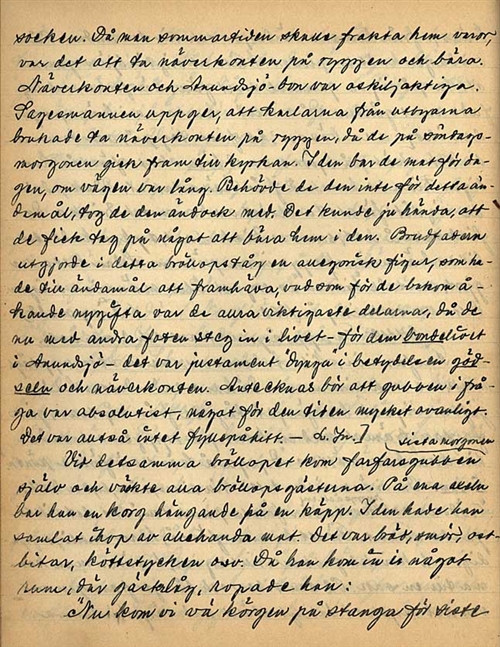 socken. Då man sommartiden skulle frakta hem varor,
var det att ta näverkonten på ryggen och bära.
Näverkonten och Anundsjö-bon var oskiljaktiga.
Sagesmannen uppger, att karlarna från utbyarna
brukade ta näverkonten på ryggen, då de på söndags-
morgonen gick fram till kyrkan. I den bar de mat för da-
gen, om vägen var lång. Behövde de den inte för detta än-
damål, tog de den ändock med. Det kunde ju hända, att
de fick tag på något att bära hem i den. Brudfadern
utgjorde i detta bröllopståg en allegorisk figur, som ha-
de till ändamål att framhäva, vad som för de bekom å-
kande nygifta var de allra viktigaste delarna, då de
nu med andra foten steg in i livet - för dem bondelivet
i Anundsjö - det var justament "dynga" i betydelsen göd-
seln och näverkonten. Antecknas bör att gubben i frå-
ga var absolutist, något för den tiden mycket ovanligt.
Det var alltså intet fyllepåhitt. -
sista morgonen
Vid detsamma bröllopet kom farfarsgubben
själv och väckte alla bröllopsgästerna. På ena axeln
bar han en korg hängande på en käpp. I den hade han
samlat ihop av allehanda mat. Det var bröd, smör, ost-
bitar, köttstycken osv. Då han kom in i något
rum, där gäster låg, ropade han:
"Nu kom vi vä körgen på stanga för siste